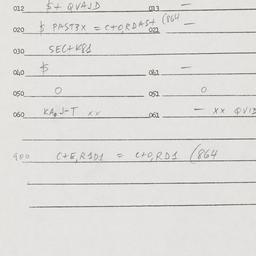 012 $+ QVAJD 013 —
020 $ PAST3X = C+O,RDAS+ (864 021 —
030 SEC+K81
040 $ 041 —
050 O 051 O
060 J-T XX 061 — XX QVI
900 C+E,R1D1 = C+O,RD1 (864